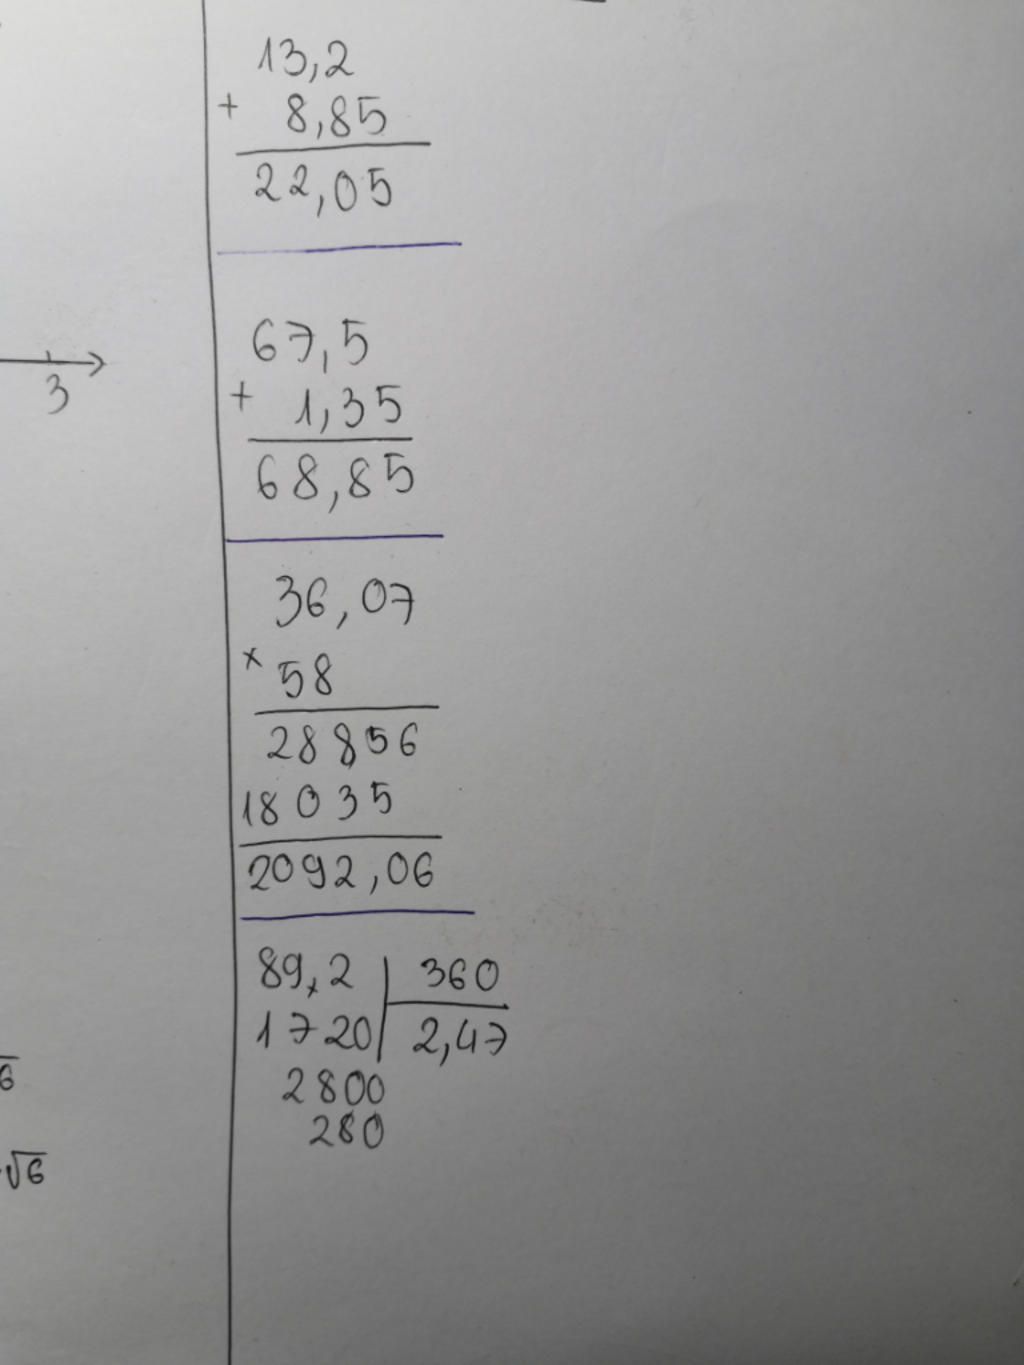 13,2
+ 8,85
22,05
67,5
+ 1,35
68,85
3
36,07
x 58
28856
18035
2092,06
89,2 360
1720 2,47
2800
280
√6